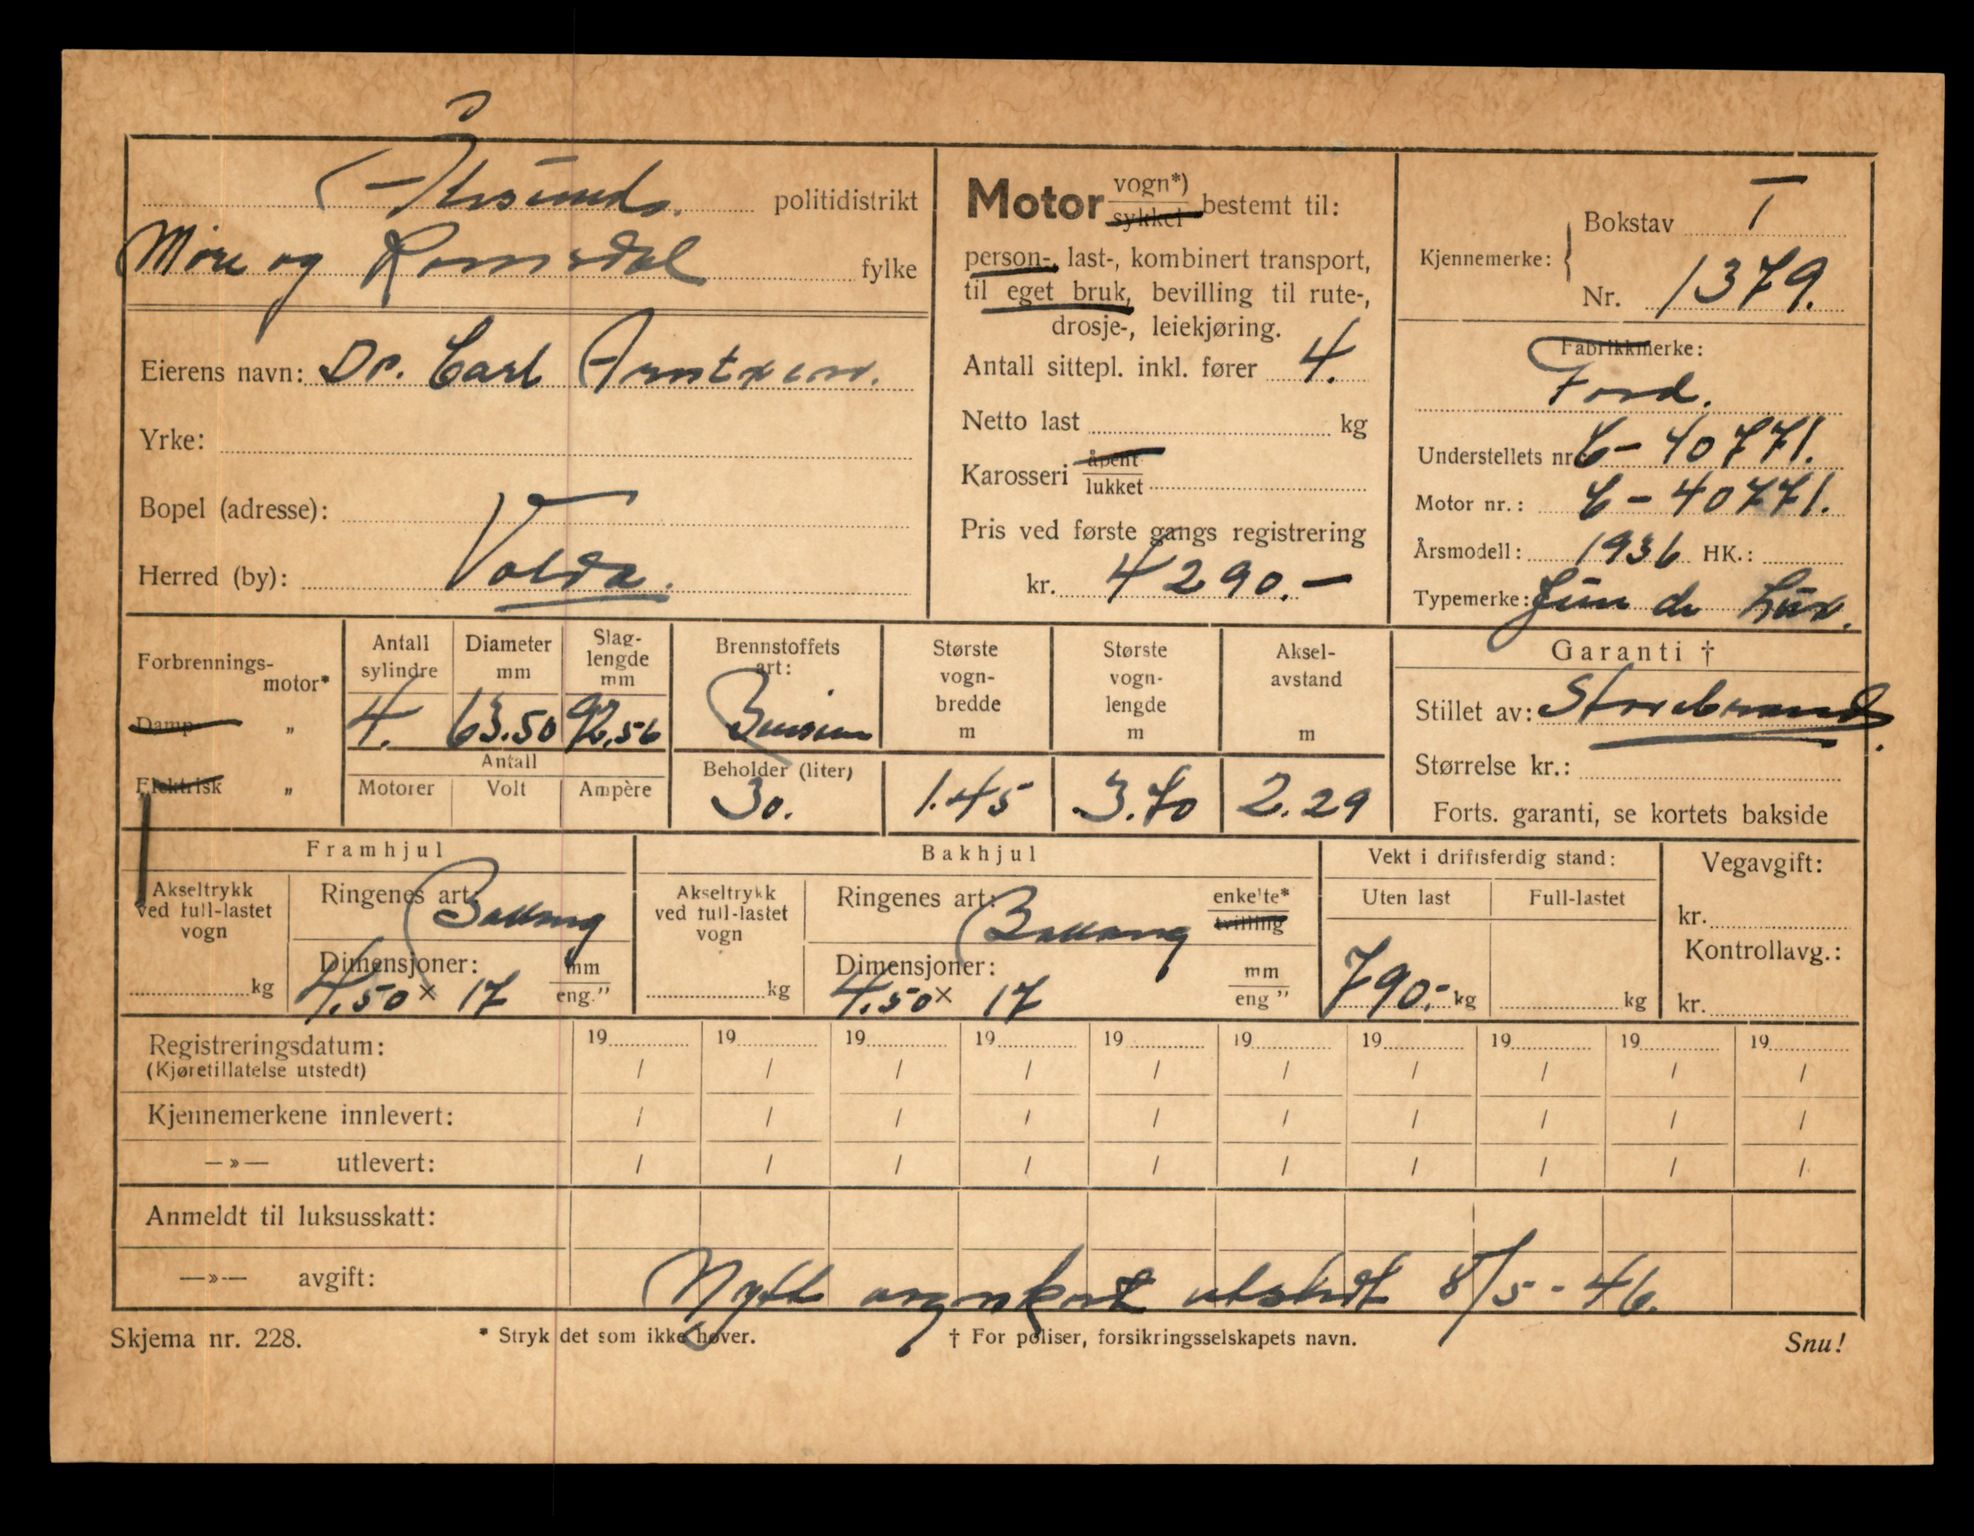 Ålesunds politidistrikt
Møre og Romsdal fylke
Eierens navn: Dr. Carl Arntzen.
Yrke:
Bopel (adresse):
Herred (by): Volda.
Motor vogn*) sykkel bestemt til:
person-, last-, kombinert transport,
til eget bruk, bevilling til rute-,
drosje-, leiekjøring.
Antall sittepl. inkl. fører 4.
Netto last kg
Karosseri åpent lukket
Pris ved første gangs registrering
kr. 4290.-
Kjennemerke: Bokstav T
Nr. 1379.
Fabrikkmerke:
Ford.
Understellets nr. C-40771.
Motor nr.: C-40771.
Årsmodell: 1936 HK.:
Typemerke: Jun de Lux.
Forbrennings-
motor*
Damp "
Elektrisk "
Antall
sylindre
4.
Diameter
mm
63.50
Slag-
lengde
mm
92.56
Antall
Motorer Volt Ampère
Brennstoffets
art:
Bensin
Beholder (liter)
30.
Største
vogn-
bredde
m
1.45
Største
vogn-
lengde
m
3.70
Aksel-
avstand
m
2.29
Garanti †
Stillet av: Storebrand.
Størrelse kr.:
Forts. garanti, se kortets bakside
Framhjul
Akseltrykk
ved full-lastet
vogn
kg
Ringenes art:
Ballong
Dimensjoner: mm
4.50 x 17 eng."
Bakhjul
Akseltrykk
ved full-lastet
vogn
kg
Ringenes art: enkelte*
Ballong tvilling
Dimensjoner: mm
4.50 x 17 eng "
Vekt i driftsferdig stand:
Uten last Full-lastet
790.- kg kg
Vegavgift:
kr.
Kontrollavg.:
kr.
Registreringsdatum: 19 19 19 19 19 19 19 19 19 19
(Kjøretillatelse utstedt) / / / / / / / / / /
Kjennemerkene innlevert: / / / / / / / / / /
—»— utlevert: / / / / / / / / / /
Anmeldt til luksusskatt:
—»— avgift:
Nytt vognkort utstedt 8/5-46.
Skjema nr. 228. * Stryk det som ikke høver. † For poliser, forsikringsselskapets navn. Snu!